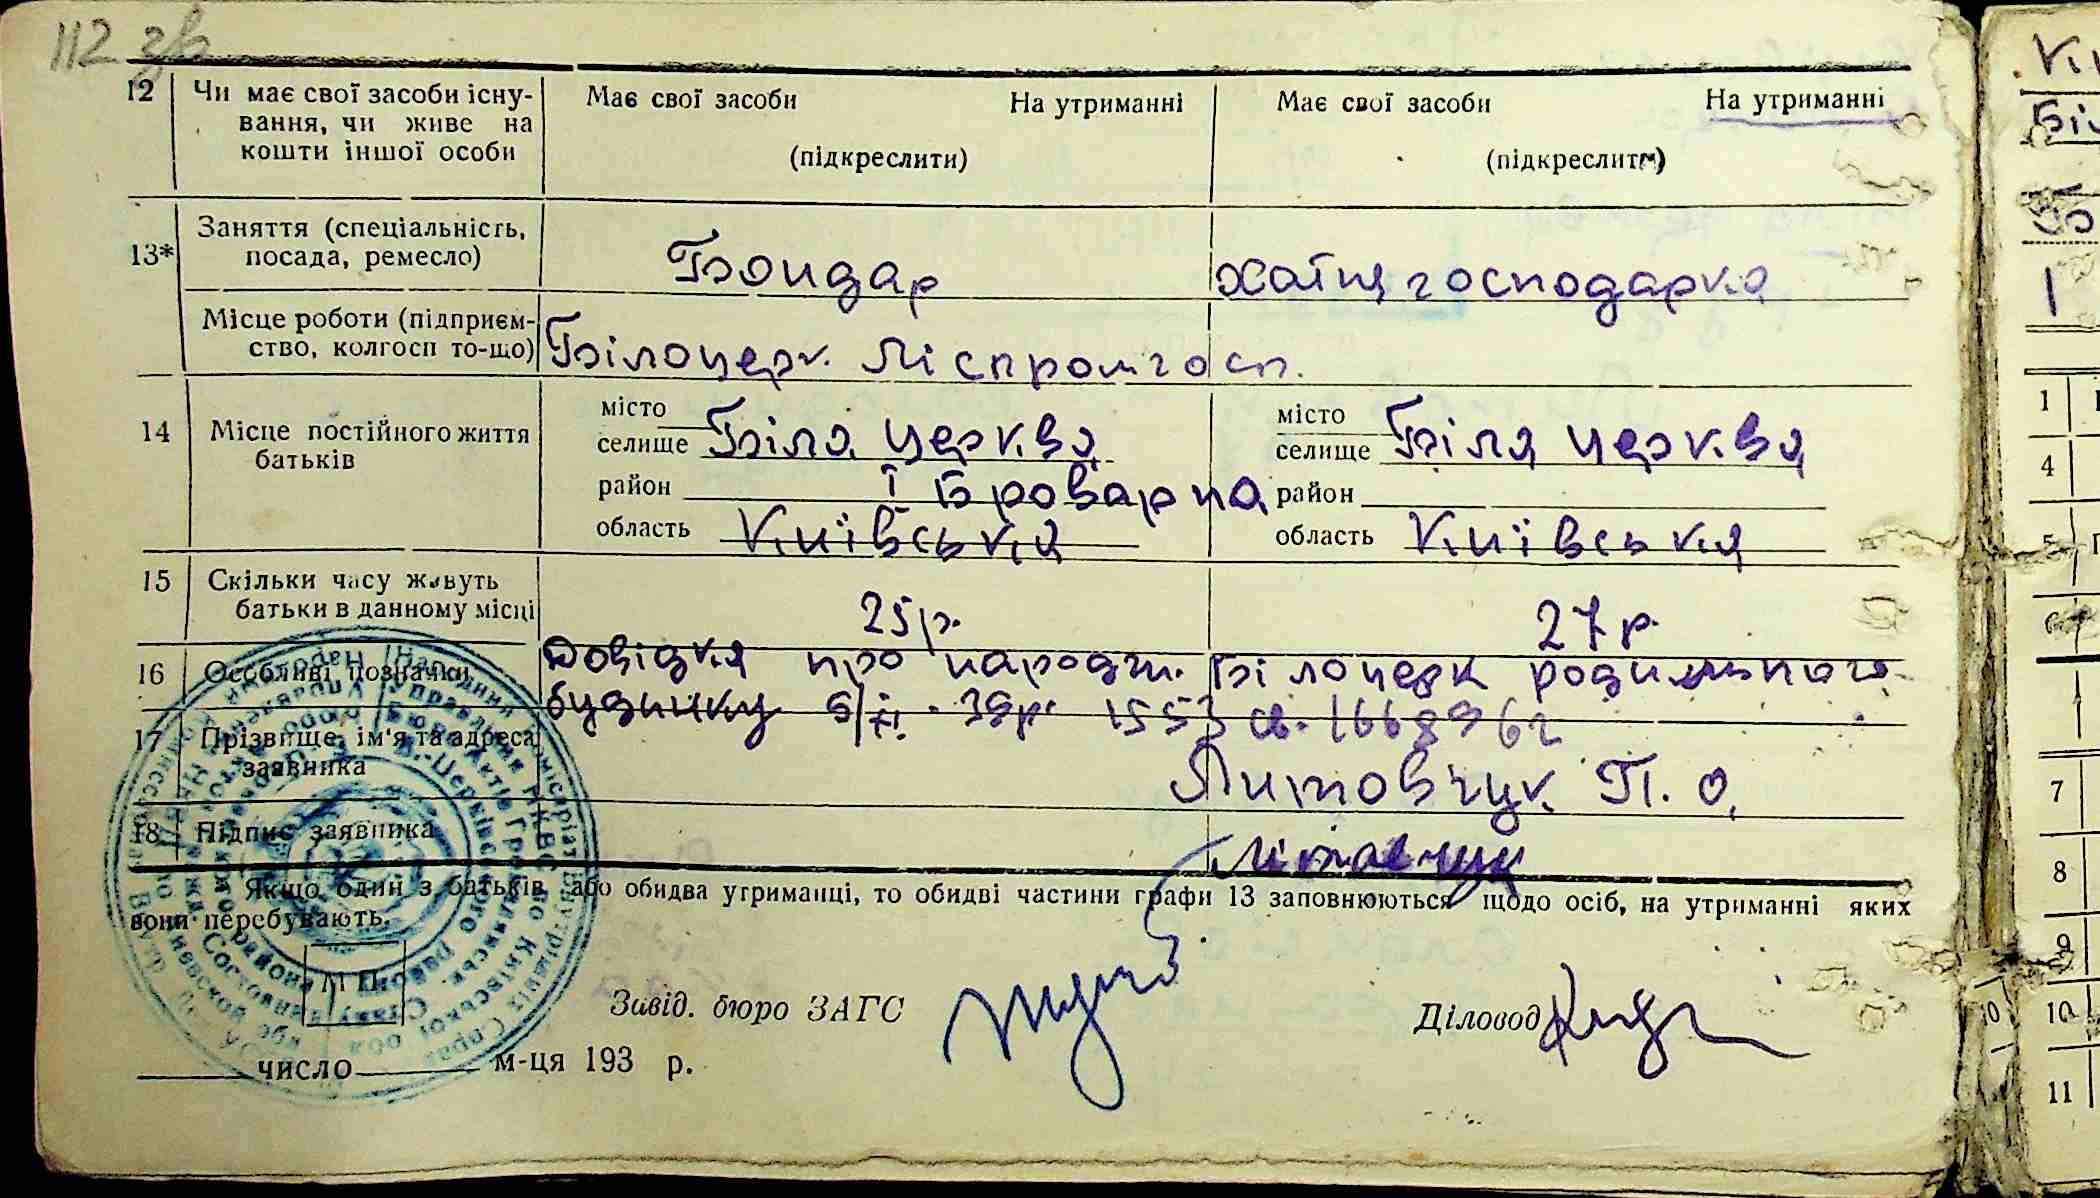 112 зв
12 Чи має свої засоби існу- Має свої засоби На утриманні Має свої засоби На утриманні
вання, чи живе на
кошти іншої особи (підкреслити) (підкреслити)
13* Заняття (спеціальність,
посада, ремесло) Бондар хатня господарка
Місце роботи (підприєм-
ство, колгосп то-що) Білоцерк. Ліспромгосп.
14 Місце постійного життя
батьків
місто місто
селище Біла церква селище Біля церква
район І Броварна район
область Київська область Київська
15 Скільки часу живуть
батьки в данному місці 25 р. 27 р.
16 Особливі позначки Довідка про народж. Білоцерк родильного
будинку 9/XI.39р. 1553
17 Прізвище, ім'я та адреса
заявника Литовчук П. О.
18 Підпис заявника Літовчук
Якщо один з батьків або обидва утриманці, то обидві частини графи 13 заповнюються щодо осіб, на утриманні яких
вони перебувають.
М П.
Завід. бюро ЗАГС Діловод
число м-ця 193 р.
1
4
5
7
8
9
10 10
11